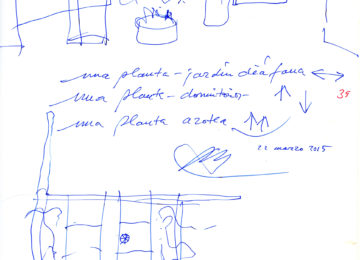 una planta - jardín diáfana
una planta - dormitorio -
una planta azotea
35
22 marzo 2015